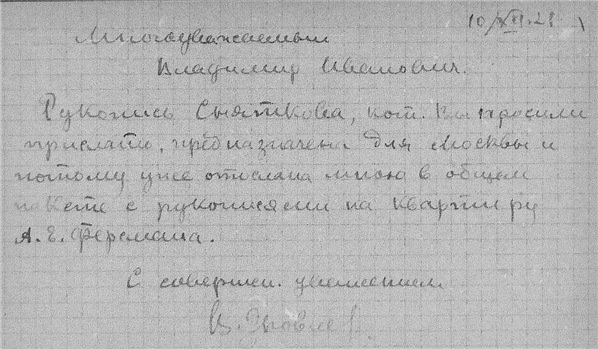 10/XII.28
Многоуважаемый
Владимир Иванович.
Рукопись Сняткова, кот. Вы просили
прислать, предназначена для Москвы и
потому уже отослана мною в общем
пакете с рукописями на квартиру
А. Е. Ферсмана.
С совершен. уважением